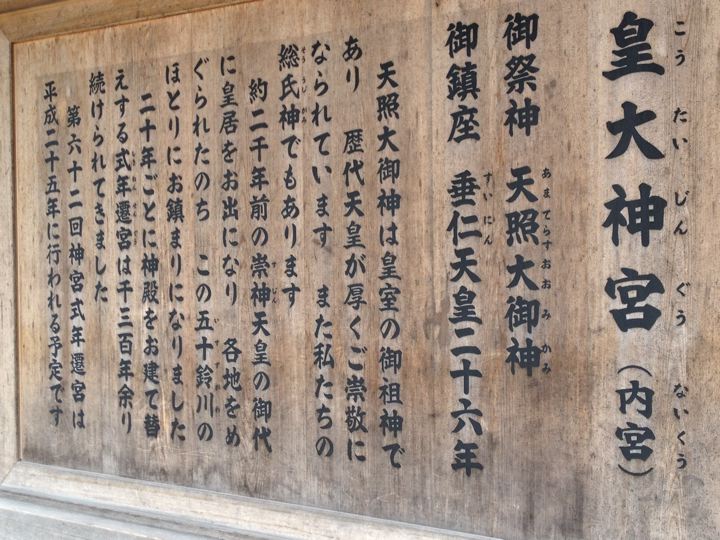 皇大神宮（内宮）
こうたいじんぐう ないくう
御祭神 天照大御神
あまてらすおおみかみ
御鎮座 垂仁天皇二十六年
すいにん
天照大御神は皇室の御祖神で
あり 歴代天皇が厚くご崇敬に
なられています また私たちの
総氏神でもあります
そううじがみ
約二千年前の崇神天皇の御代
すじん
に皇居をお出になり 各地をめ
ぐられたのち この五十鈴川の
いすず
ほとりにお鎮まりになりました
二十年ごとに神殿をお建て替
えする式年遷宮は千三百年余り
続けられてきました
第六十二回神宮式年遷宮は
平成二十五年に行われる予定です